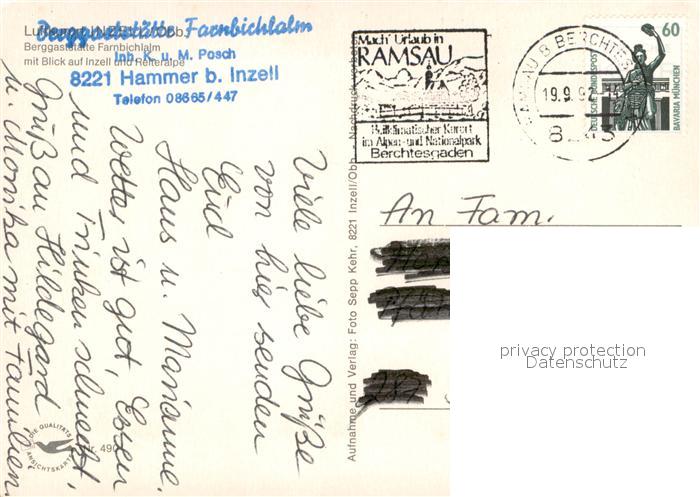 Luftkurort INZELL/Obb.
Berggaststätte Farnbichlalm
mit Blick auf Inzell und Reiteralpe
Berggaststätte Farnbichlalm
Inh. K. u. M. Posch
8221 Hammer b. Inzell
Telefon 08665/447
Mach' Urlaub in
RAMSAU
Heilklimatischer Kurort
im Alpen- und Nationalpark
Berchtesgaden
RAMSAU B BERCHTES
19.9.92
DEUTSCHE BUNDESPOST
60
BAVARIA MÜNCHEN
Viele liebe Grüße
von hier senden
Euch
Hans u. Marianne.
Wetter ist gut, Essen
und Trinken schmeckt,
Gruß an Hildegard
u. Monika mit Familien.
An Fam.
Aufnahme und Verlag: Foto Sepp Kehr, 8221 Inzell/Obb. - Nachdruck verboten
DIE QUALITÄTS
ANSICHTSKARTE
Nr. 490
privacy protection
Datenschutz